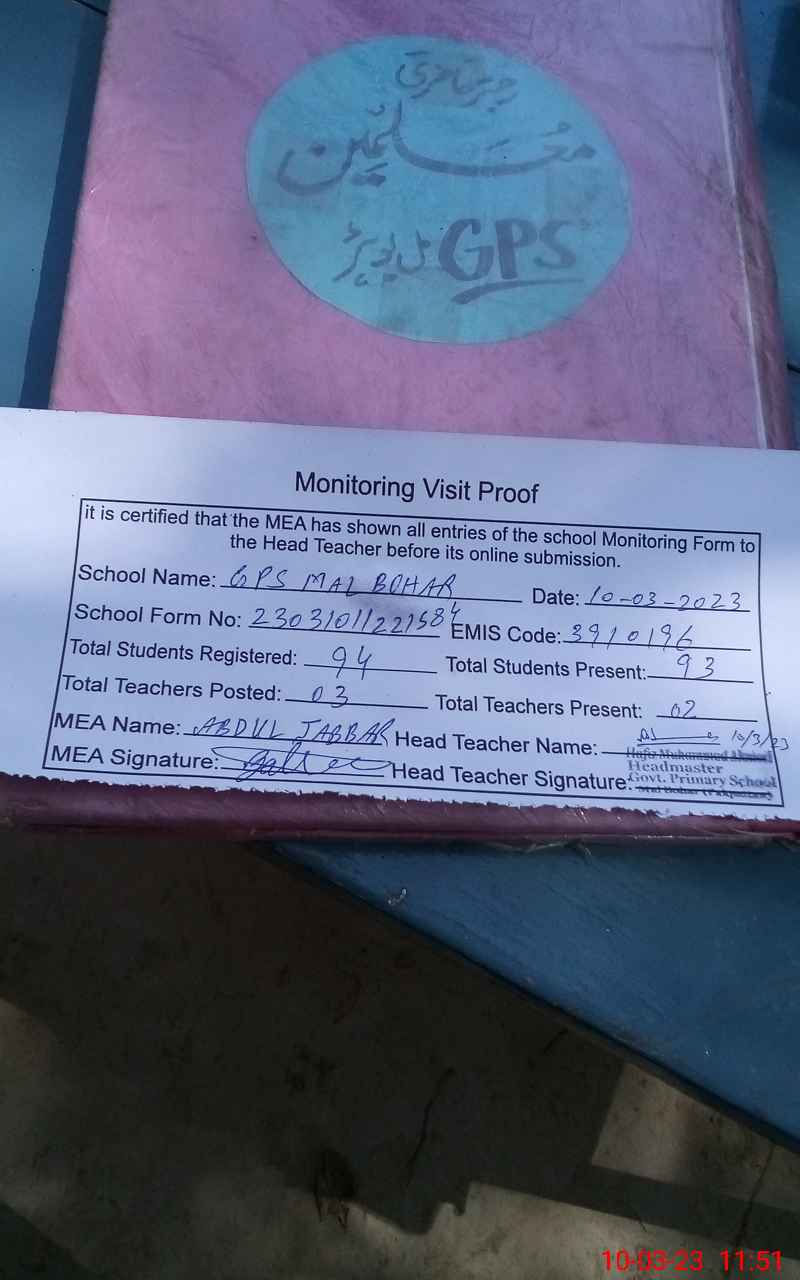 رجسٹر حاضری
معلمین
GPS مل بوہڑ
Monitoring Visit Proof
it is certified that the MEA has shown all entries of the school Monitoring Form to
the Head Teacher before its online submission.
School Name: GPS MAL BOHAR Date: 10-03-2023
School Form No: 23031011221584 EMIS Code: 3910196
Total Students Registered: 94 Total Students Present: 93
Total Teachers Posted: 03 Total Teachers Present: 02
MEA Name: ABDUL JABBAR Head Teacher Name: 10/3/23
MEA Signature: Head Teacher Signature:
Hafiz Muhammad
Headmaster
Govt. Primary School
Mal Bohar
10-03-23 11:51